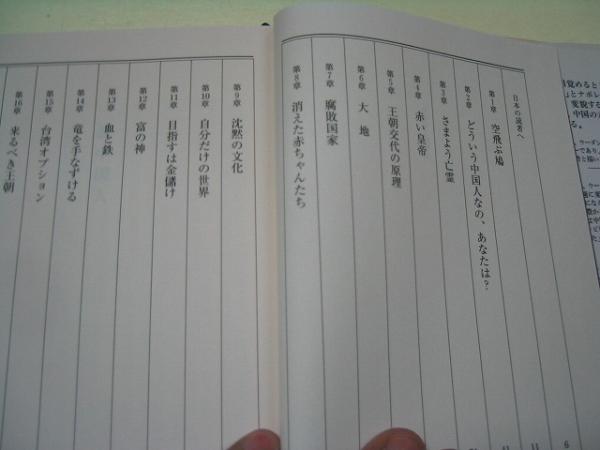 日本の読者へ
第1章 空飛ぶ鳩
第2章 どういう中国人なの、あなたは?
第3章 さまよう亡霊
第4章 赤い皇帝
第5章 王朝交代の原理
第6章 大地
第7章 腐敗国家
第8章 消えた赤ちゃんたち
第9章 沈黙の文化
第10章 自分だけの世界
第11章 目指すは金儲け
第12章 富の神
第13章 血と鉄
第14章 竜を手なずける
第15章 台湾オプション
第16章 来るべき王朝
6
11